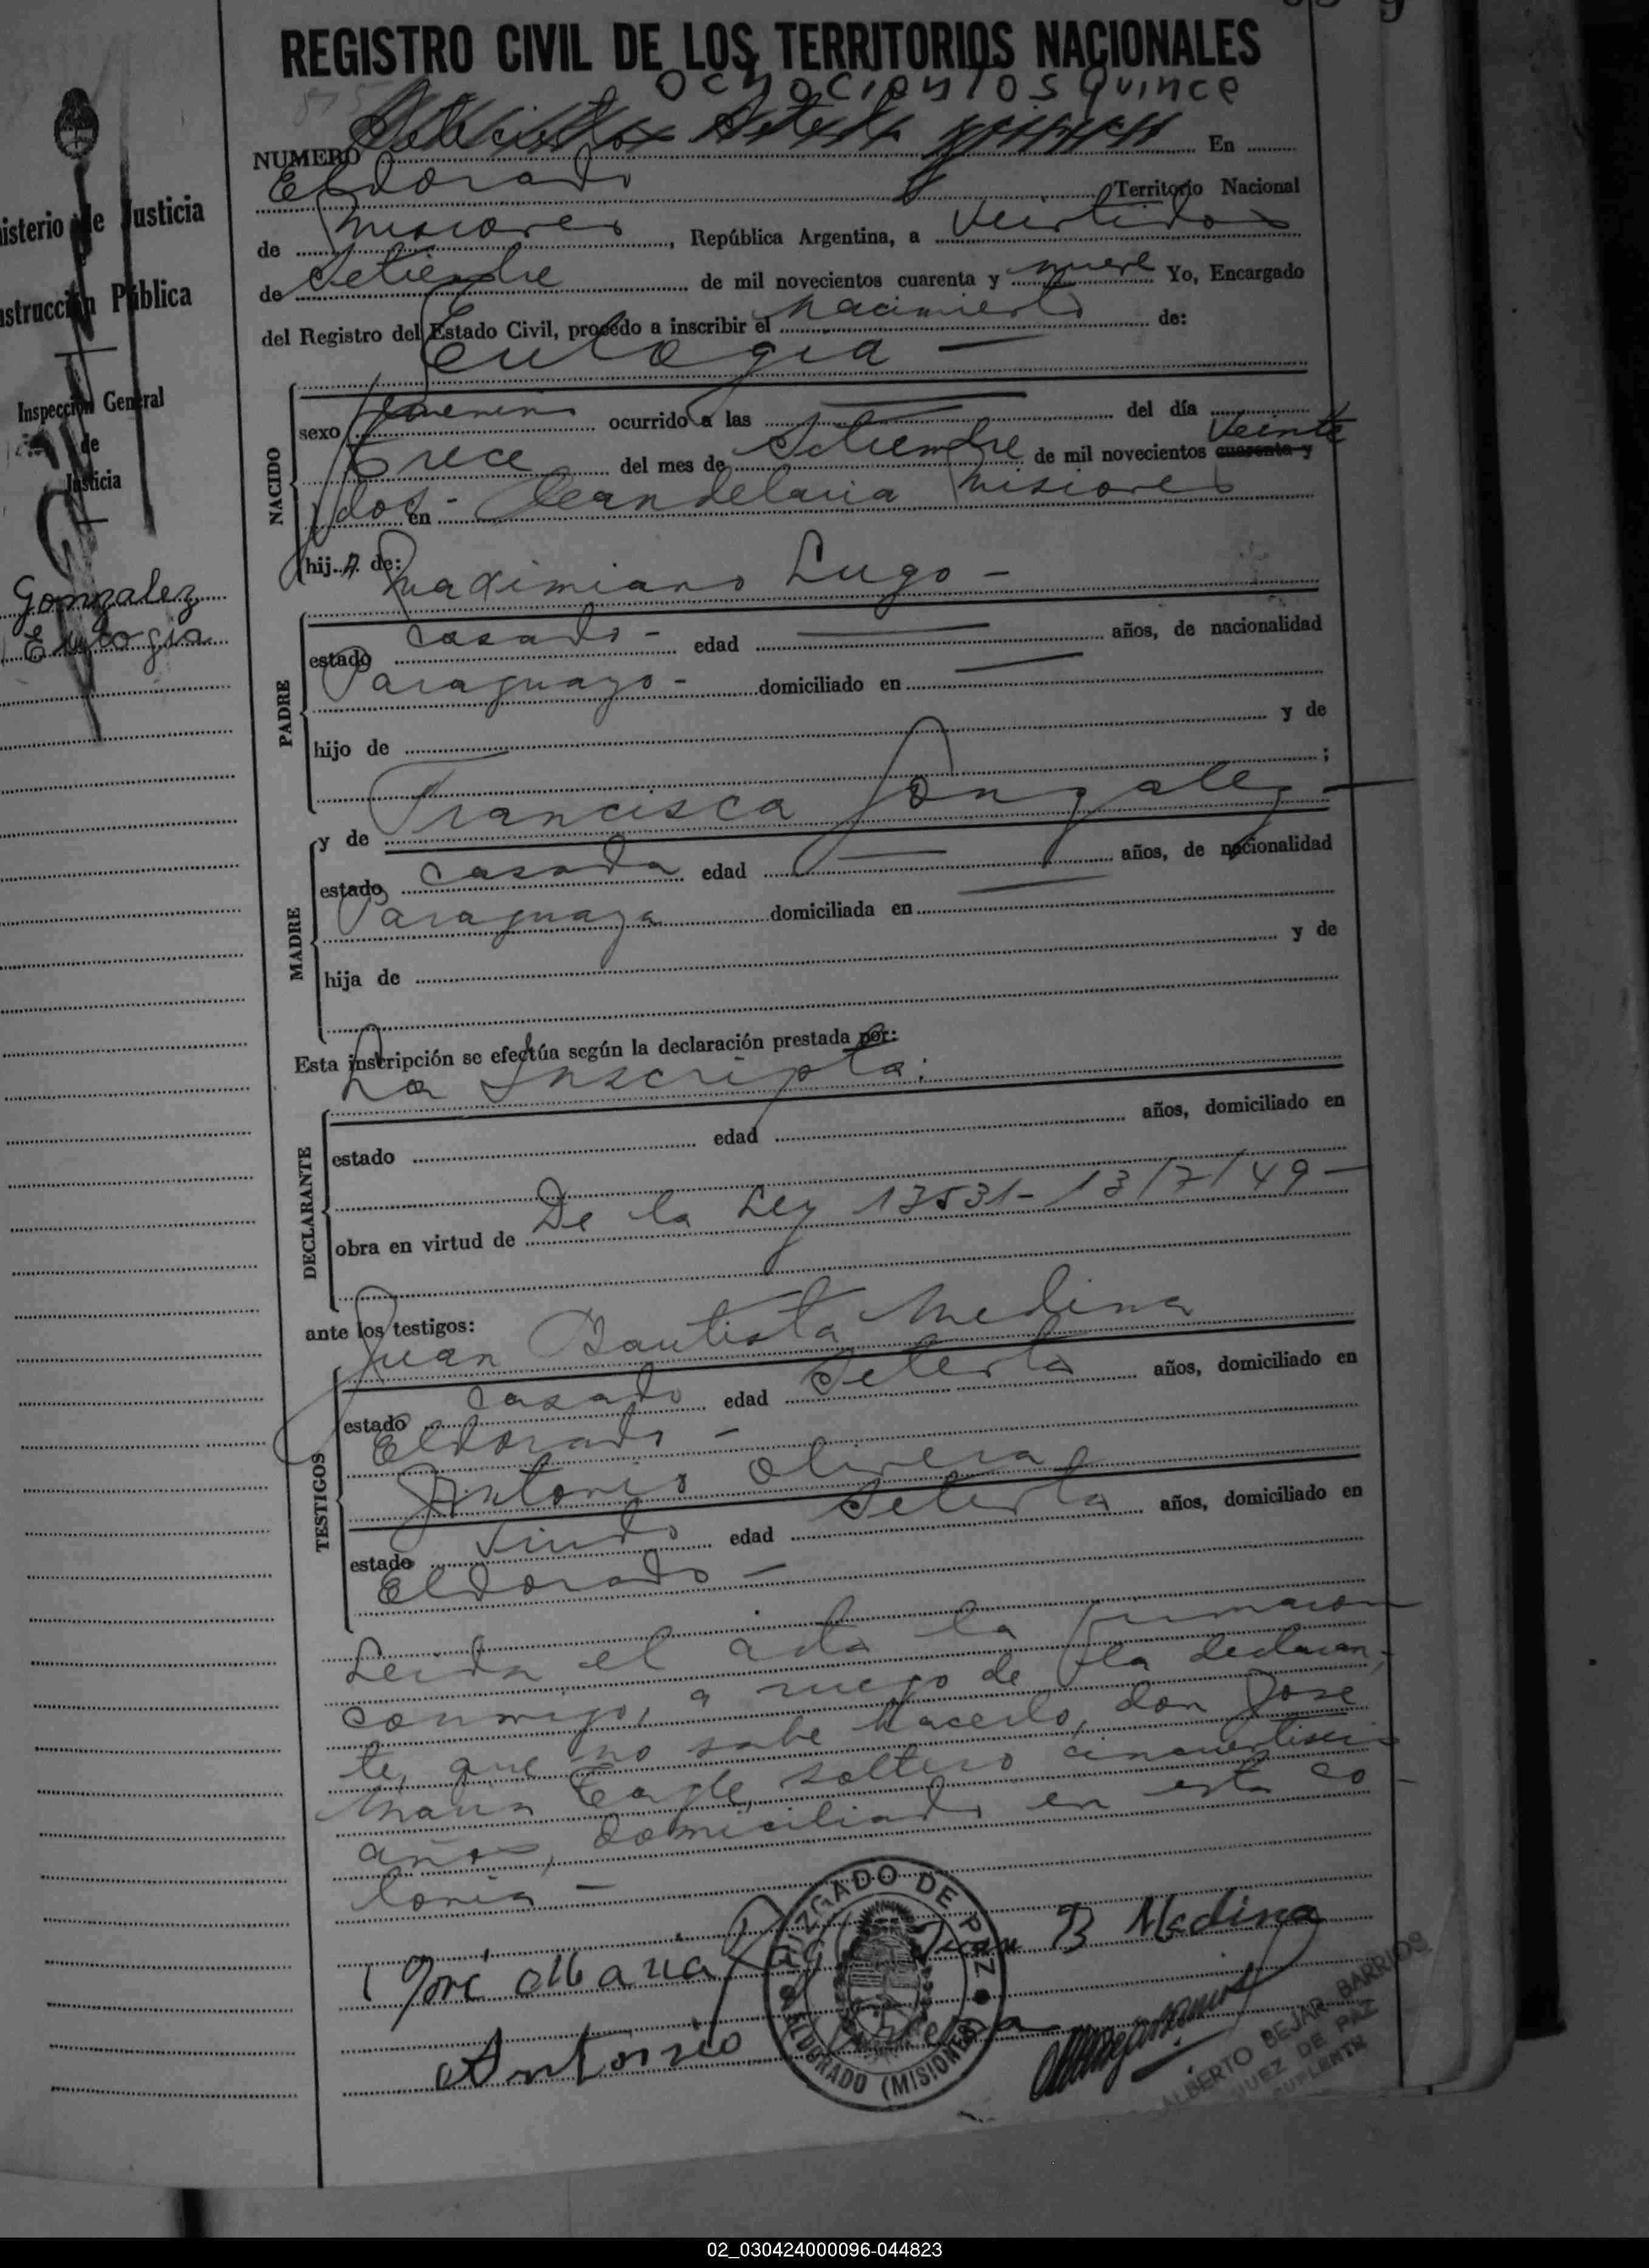 REGISTRO CIVIL DE LOS TERRITORIOS NACIONALES
815
Ochocientos quince
NUMERO En
Eldorado Territorio Nacional
de Misiones, República Argentina, a veintidos
de Setiembre de mil novecientos cuarenta y nueve Yo, Encargado
del Registro del Estado Civil, procedo a inscribir el nacimiento de:
Eulogia —
NACIDO
sexo femenino ocurrido a las — del día
trece del mes de Setiembre de mil novecientos cuarenta y veinte
dos - en Candelaria Misiones
hija de: Maximiano Lugo -
PADRE
estado casado - edad — años, de nacionalidad
Paraguayo - domiciliado en —
hijo de y de
;
y de Francisca Gonzalez -
MADRE
estado casada edad — años, de nacionalidad
Paraguaya domiciliada en —
hija de y de
Esta inscripción se efectúa según la declaración prestada por:
La Inscripta.
DECLARANTE
estado edad años, domiciliado en
obra en virtud de De la Ley 13531 - 13/7/49 -
ante los testigos:
Juan Bautista Medina
TESTIGOS
estado casado edad Setenta años, domiciliado en
Eldorado -
Antonio Olivera
estado viudo edad Setenta años, domiciliado en
Eldorado -
Leida el acta la firmaron
conmigo, a ruego de la declaran-
te, que no sabe hacerlo, don José
Maria Cagle, soltero cincuentiseis
años, domiciliado en esta co-
lonia -
José Maria Juan B Medina
Antonio Olivera
JUZGADO DE PAZ
ELDORADO (MISIONES)
ALBERTO BEJAR BARRIOS
JUEZ DE PAZ
SUPLENTE
isterio de Justicia
strucción Pública
Inspección General
de
Justicia
Gonzalez
Eulogia
02_030424000096-044823